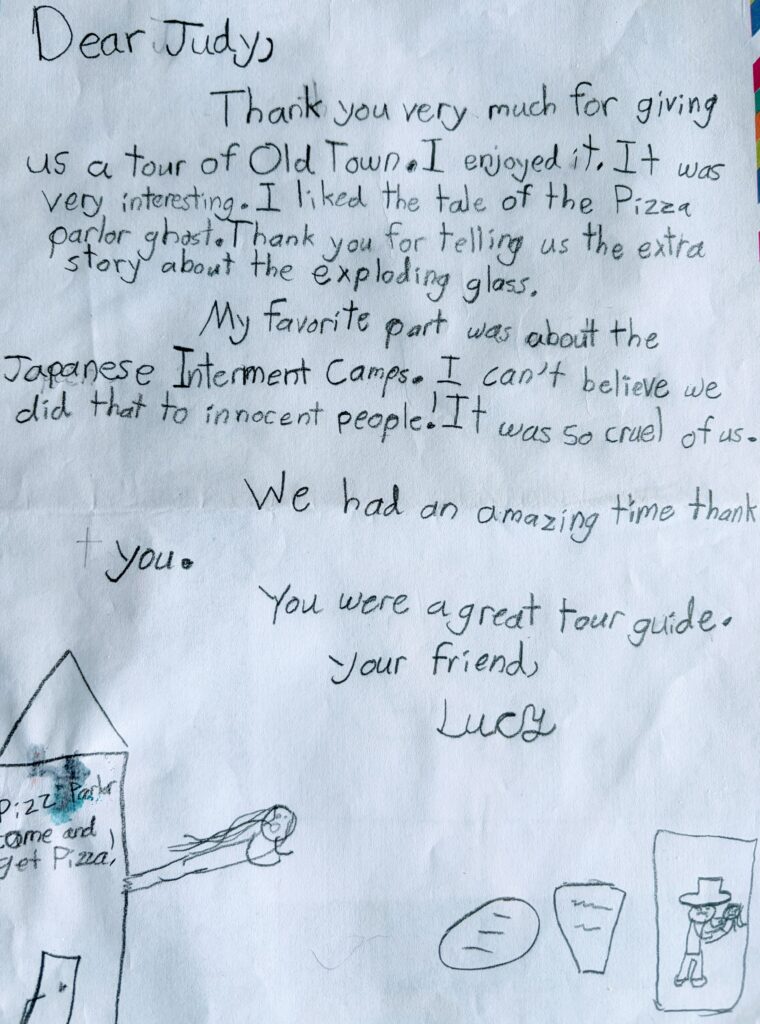 Dear Judy,
Thank you very much for giving
us a tour of Old Town. I enjoyed it. It was
very interesting. I liked the tale of the Pizza
parlor ghost. Thank you for telling us the extra
story about the exploding glass.
My favorite part was about the
Japanese Interment Camps. I can't believe we
did that to innocent people! It was so cruel of us.
We had an amazing time thank
you.
You were a great tour guide.
Your friend,
Lucy
Pizz Parlor
come and
get Pizza,